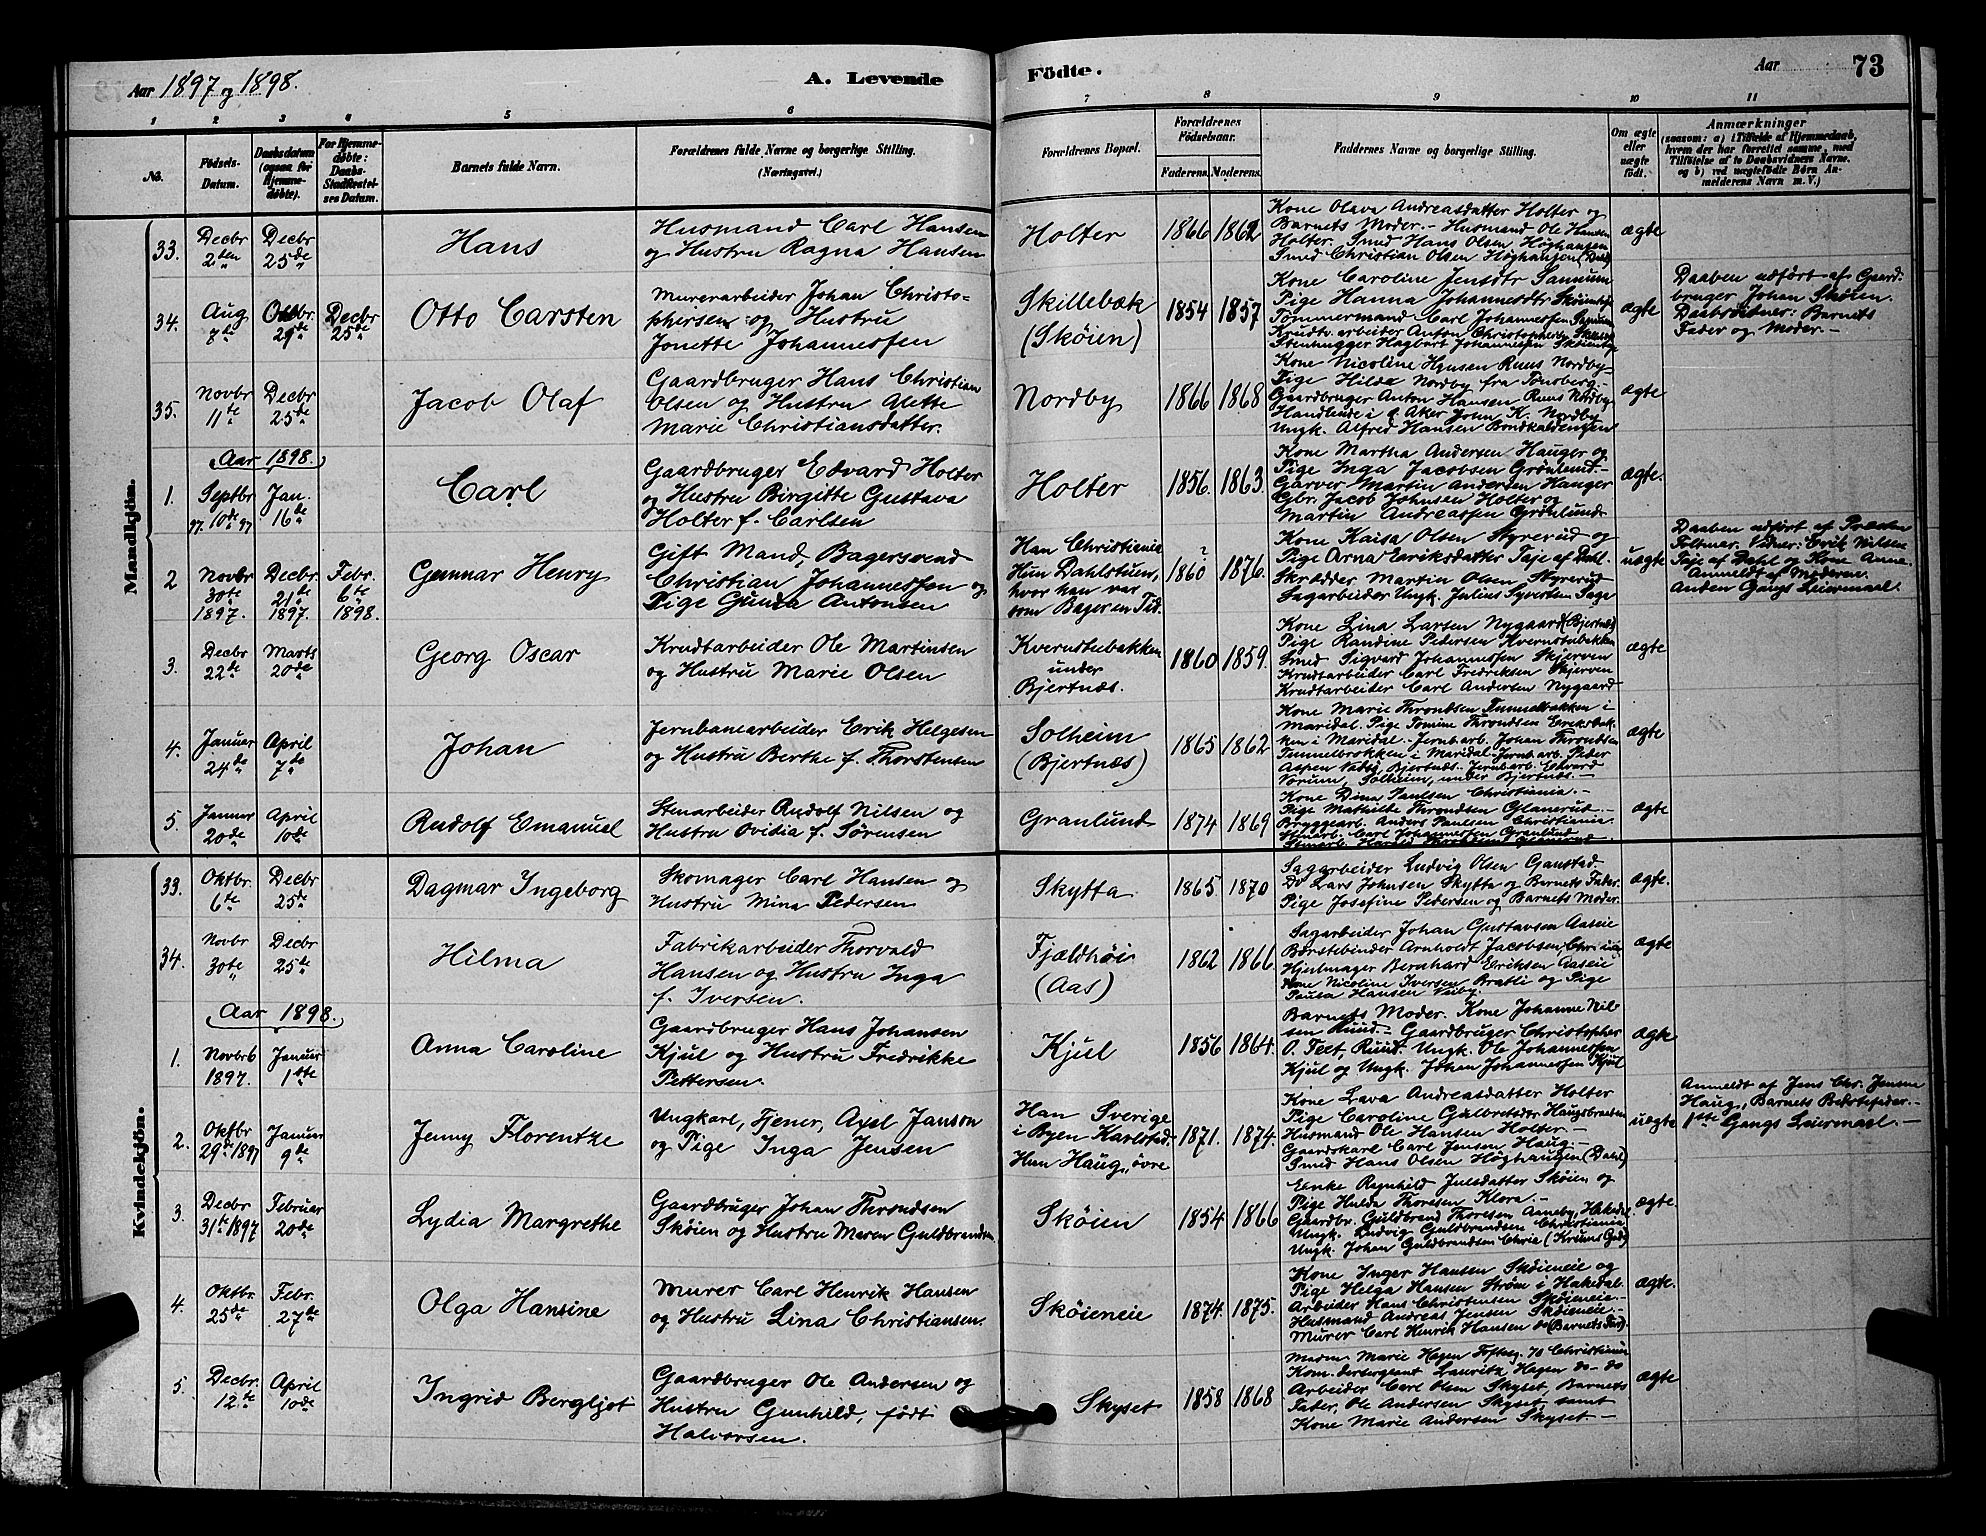 Aar 1897 og 1898.
A. Levende
Fødte.
Aar
73
1 2 3 4 5 6 7 8 9 10 11
No.
Fødsels-
Datum.
Daabsdatum
(ogsaa for
Hjemme-
døbte).
For Hjemme-
døbte:
Daabs-
Stadfæstel-
ses Datum.
Barnets fulde Navn.
Forældrenes fulde Navne og borgerlige Stilling.
(Næringsvei.)
Forældrenes Bopæl.
Forældrenes
Fødselsaar.
Faderens. Moderens.
Faddernes Navne og borgerlige Stilling.
Om ægte
eller
uægte
født.
Anmærkninger
(saasom: a) i Tilfælde af Hjemmedaab,
hvem der har forrettet samme, med
Tilføielse af to Daabsvidners Navne.
og b) ved uægtefødte Børn An-
melderens Navn m. V.)
Mandkjøn.
33.
Decbr
2den
Decbr
25de
Hans
Husmand Carl Hansen
og Hustru Ragna Hansen
Holter
1866 1862
Kone Olava Andreasdatter Holter og
Barnets Moder. - Husmand Ole Hansen
Holter. Smed Hans Olsen Høghaugen
Smed Christian Olsen Høghaugen (Dahl)
ægte
34.
Aug.
7de
Oktbr.
29de
Decbr
25de
Otto Carsten
Murerarbeider Johan Christo-
phersen og Hustru
Jonette Johannessen
Skillebæk
(Skøien)
1854 1857
Kone Caroline Jensdtr Sannum
Pige Hanna Johannesdtr
Tømmermand Carl Johannessen
Krudtv. arbeider Anton Christophersen
Stenhugger Hagbart Johannessen
ægte
Daaben udført af Gaard-
bruger Johan Skøien.
Daabsvidner: Barnets
Fader og Moder. -
35.
Novbr
11te
Decbr
25de
Jacob Olaf
Gaardbruger Hans Christian
Olsen og Hustru Alette
Marie Christiansdatter.
Nordby
1866 1868
Kone Nicoline Hansen Ruus Nordby
Pige Hilda Nordby fra Tønsberg.
Gaardbruger Anton Hansen Ruus Nordby
Handlende i Aker John K. Nordby
Ungk. Alfred Hansen Bondkaldengen
ægte
Aar 1898.
1.
Septbr
10de 97
Jan.
16de
Carl
Gaardbruger Edvard Holter
og Hustru Birgitte Gustava
Holter f. Carlsen
Holter
1856. 1863.
Kone Martha Andersen Hauger og
Pige Inga Jacobsen Grønlund -
Garver Martin Andersen Hauger
Gbr. Jacob Johnsen Holter og
Martin Andreassen Grønlund
ægte.
2
Novbr
30te
1897.
Decbr.
21de
1897.
Febr.
6te
1898.
Gunnar Henry
Gift Mand, Bagersvend
Christian Johannessen og
Pige Gunda Antonsen
Han Christiania
Hun Dahlstuen,
hvor han var
som Bager en Tid.
1860 ? 1876.
Kone Kaisa Olsen Styrerud og
Pige Arna Eriksdatter Taje af Dahl.
Skræder Martin Olsen Styrerud
Sagarbeider Ungk. Julius Syversen Sage
uægte
Daaben udført af Præsten
Feltmar. Vidner: Erik Nilsen
Taje af Dahl og Kone Anne.
Anmeldt af Moderen.
Anden Gangs Leiermaal.
3.
Decbr
22de
Marts
20de
Georg Oscar
Krudtarbeider Ole Martinsen
og Hustru Marie Olsen
Kvernstubakken
under
Bjertnæs.
1860 1859.
Kone Lina Larsen Nygaard (Bjertnæs)
Pige Randine Pedersen Kvernstubakken
Smed Sigvard Johannessen Skjerven
Krudtarbeider Carl Fredriksen Skjerven
Krudtarbeider Carl Andersen Nygaard
ægte
4.
Januar
24de
April
7de
Johan
Jernbanearbeider Erik Helgesen
og Hustru Berthe f. Thorstensen
Solheim
(Bjertnæs)
1865 1862
Kone Marie Throndsen Tunnelbakken i
Maridal. Pige Tomine Throndsen Eriksbak-
ken i Maridal. Jernb.arb. Johan Throndsen
Tunnelbakken i Maridal. Jernb.arb. Peder
Aspen Bjertnæs. Jernb.arb. Edvard
Vorum, Solheim, under Bjertnæs. -
ægte
5.
Januar
20de
April
10de
Rudolf Emanuel
Stenarbeider Rudolf Nilsen og
Hustru Ovidia f. Sørensen
Granlund
1874 1869
Kone Dina Paulsen Christiania. -
Pige Mathilde Throndsen Glanerud. -
Bryggearb. Anders Paulsen Christiania
Stenarb. Carl Johannessen Granlund
Stenarb. Harald
ægte
Kvindekjøn.
33.
Oktbr.
6te
Decbr
25de
Dagmar Ingeborg
Skomager Carl Hansen og
Hustru Mina Pedersen
Skytta
1865 1870
Sagarbeider Ludvig Olsen Gaustad
Do Lars Johnsen Skytta og Barnets Fader.
Pige Josefine Pedersen og Barnets Moder.
ægte.
34.
Novbr
30te
Decbr
25de
Hilma
Fabrikarbeider Thorvald
Hansen og Hustru Inga
f. Iversen.
Fjeldhøi
(Aas)
1862 1866.
Sagarbeider Johan Gustavsen Aaseie
Børstebinder Arnholdt Jacobsen
Hjulmager Bernhard Eriksen Aaseie
Kone Nicoline Iversen Bratli og Pige
Paula Hansen
ægte
Aar 1898.
1.
Novbr 6
1897.
Januar
1ste
Anna Caroline
Gaardbruger Hans Johansen
Kjul og Hustru Fredrikke
Pettersen.
Kjul
1856 1864.
Barnets Moder. Kone Johanne Nil-
sen Ruud - Gaardbruger Christopher
O. Tert, Ruud. Ungk. Ole Johannessen
Kjul og Ungk. Johan Johannessen Kjul
ægte
2.
Oktbr
29de 1897
Januar
9de
Jenny Florentke
Ungkarl, Tjener, Axel Janson
og Pige Inga Jensen
Han Sverige
i Byen Karlstad.
Hun Haug, øvre
1871. 1874.
Kone Lava Andreasdatter Holter
Pige Caroline Gulbrdsdtr Haugsbraaten
Husmand Ole Hansen Holter. -
Gaardskarl Carl Jensen Haug. -
Smed Hans Olsen Høghaugen (Dahl)
uægte
Anmeldt af Jens Chr. Jensen
Haug, Barnets Bedstefader. -
1ste Gangs Leiermaal. -
3.
Decbr
31te 1897
Februar
20de
Lydia Margrethe
Gaardbruger Johan Throndsen
Skøien og Hustru Maren Guldbrandsen
Skøien
1854 1866
Enke Ragnhild Julsdatter Skøien og
Pige Hulda Thoresen Klora. -
Gaardbr. Guldbrand Thoresen, Aaneby, Hakedal
Ungk. Ludvig Guldbrandsen Christiania
Ungk. Johan Guldbrandsen Chria
ægte
4.
Oktbr
25de
Febr.
27de
Olga Hansine
Murer Carl Henrik Hansen
og Hustru Lina Christiansen.
Skøieneie
1874. 1875.
Kone Inger Hansen Skøieneie og
Pige Helga Hansen Strøm i Hakedal
Arbeider Hans Christensen Skøieneie. -
Husmand Andreas Jensen Skøieneie. -
Murer Carl Henrik Hansen do (Barnets Far).
ægte.
5.
Decbr.
12te
April
10de
Ingrid Bergljot
Gaardbruger Ole Andersen og
Hustru Gunhild, født
Halvorsen.
Skyset
1858 1868
Madm. Marie Hagen Toftesg. 70 Christiania
Kom.dersergeant Lauritz Hagen do - do
Arbeider Carl Olsen Skyset, Barnets
Fader, Ole Andersen Skyset, samt
Kone Marie Andersen Skyset -
ægte